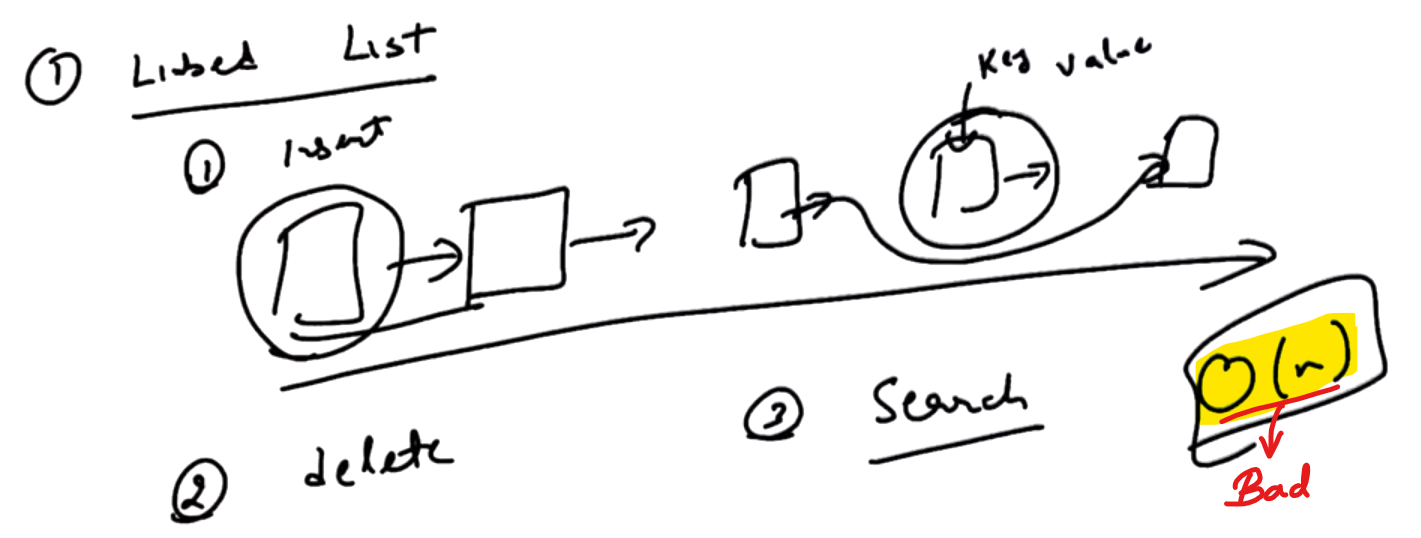 ① Linked List
① Insert
Key value
② delete
③ Search
O(n)
Bad